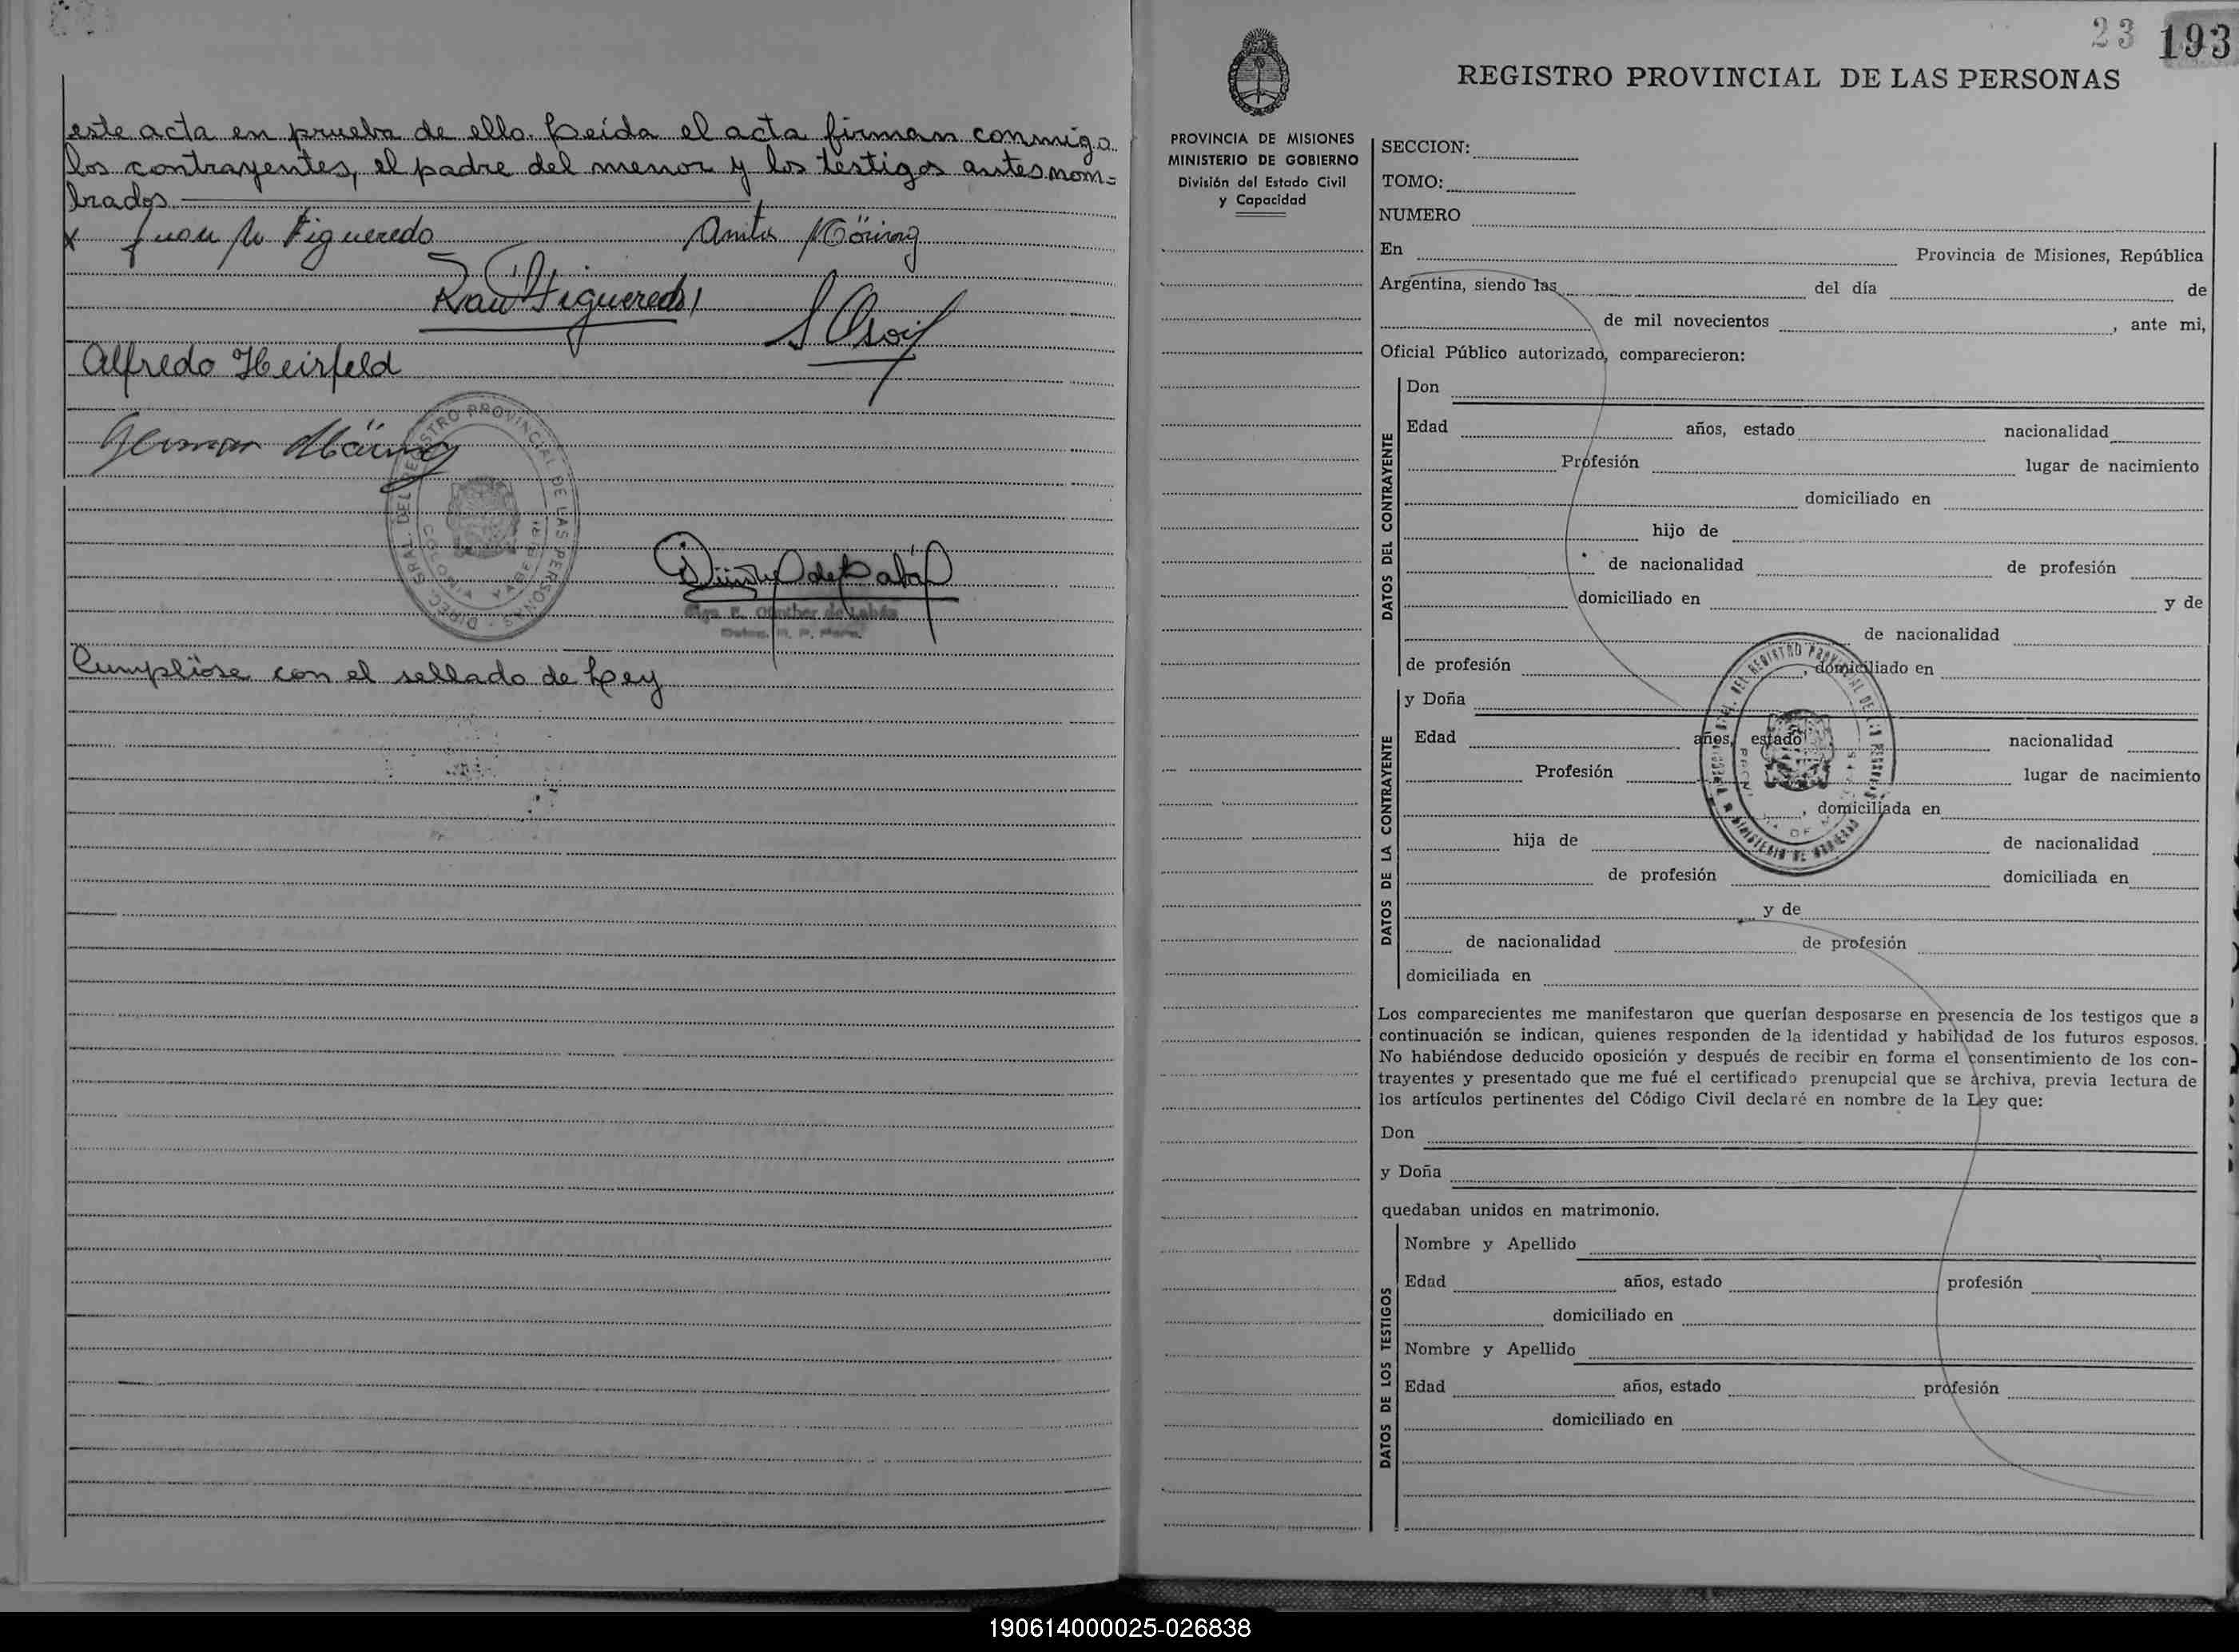 este acta en prueba de ello. Leída el acta firman conmigo
los contrayentes, el padre del menor y los testigos antes nom=
brados
x Juan Figueredo Anita Möring
Raul Figueredo
Alfredo Heirfeld
German Möring
DIREC. GRAL. DEL REGISTRO PROVINCIAL DE LAS PERSONAS
Günther de Labáp
E. Günther de Labáp
Cumplióse con el sellado de Ley
23 193
REGISTRO PROVINCIAL DE LAS PERSONAS
PROVINCIA DE MISIONES
MINISTERIO DE GOBIERNO
División del Estado Civil
y Capacidad
SECCION:
TOMO:
NUMERO
En Provincia de Misiones, República
Argentina, siendo las del día de
de mil novecientos , ante mi,
Oficial Público autorizado, comparecieron:
DATOS DEL CONTRAYENTE
Don
Edad años, estado nacionalidad
Profesión lugar de nacimiento
domiciliado en
hijo de
de nacionalidad de profesión
domiciliado en y de
de nacionalidad
de profesión , domiciliado en
DATOS DE LA CONTRAYENTE
y Doña
Edad años, estado nacionalidad
Profesión lugar de nacimiento
, domiciliada en
hija de de nacionalidad
de profesión domiciliada en
y de
de nacionalidad de profesión
domiciliada en
Los comparecientes me manifestaron que querían desposarse en presencia de los testigos que a
continuación se indican, quienes responden de la identidad y habilidad de los futuros esposos.
No habiéndose deducido oposición y después de recibir en forma el consentimiento de los con-
trayentes y presentado que me fué el certificado prenupcial que se archiva, previa lectura de
los artículos pertinentes del Código Civil declaré en nombre de la Ley que:
Don
y Doña
quedaban unidos en matrimonio.
DATOS DE LOS TESTIGOS
Nombre y Apellido
Edad años, estado profesión
domiciliado en
Nombre y Apellido
Edad años, estado profesión
domiciliado en
190614000025-026838